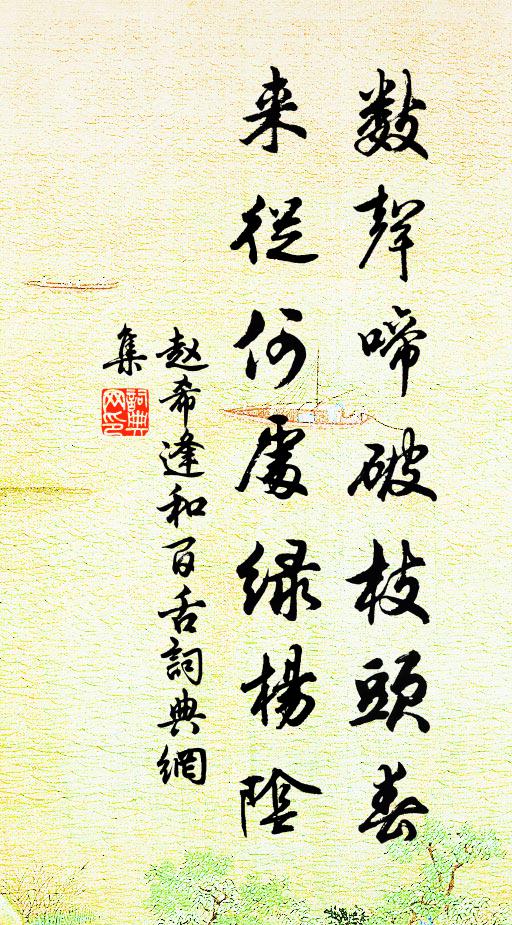 数聲啼破枝頭春
来從何處绿楊陰
赵希逢和百舌詞典網
集
詞典
网印